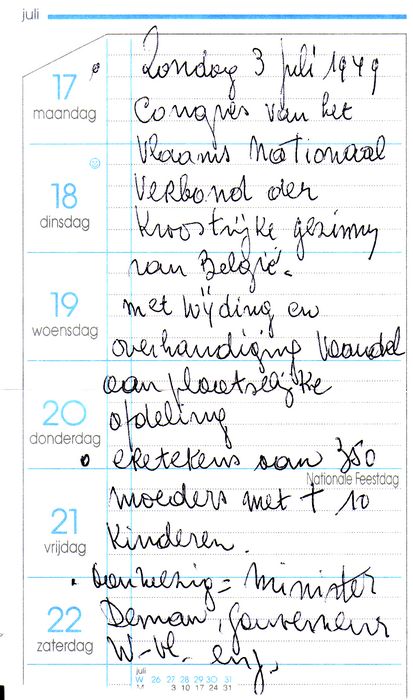 juli
17
maandag
18
dinsdag
19
woensdag
20
donderdag
21
vrijdag
22
zaterdag
Zondag 3 juli 1949
Congres van het
Vlaams Nationaal
Verbond der
Kroostrijke gezinnen
van België.
met Wijding en
overhandiging Vaandel
aan plaatselijke
afdeling
eretekens aan 350
Nationale Feestdag
moeders met + 10
Kinderen.
Aanwezig = Minister
Deman, Gouverneur
W-Vl. enz.
juli
W 26 27 28 29 30 31
M 3 10 17 24 31